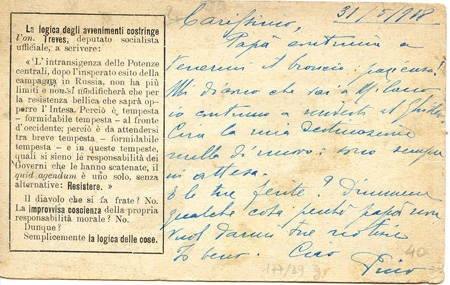 La logica degli avvenimenti costringe
l'on. Treves, deputato socialista
ufficiale, a scrivere:
« L'intransigenza delle Potenze
centrali, dopo l'insperato esito della
campagna in Russia, non ha più
limiti e non si modificherà che per
la resistenza bellica che saprà oppor-
re l'Intesa. Perciò è tempesta
- formidabile tempesta - al fronte
d'occidente; perciò è da attendersi
tra breve tempesta - formidabile
tempesta - e in queste tempeste,
quali si sieno le responsabilità dei
Governi che le hanno scatenate, il
quid agendum è uno solo, senza
alternative: Resistere. »
Il diavolo che si fa frate? No.
La improvvisa coscienza della propria
responsabilità morale? No.
Dunque?
Semplicemente la logica delle cose.
31/5/918
Carissimo,
Papà continua a
tenermi il broncio, pazienza!
Mi dicono che sei a Milano
io continuo a
Circa la mia destinazione
nulla di nuovo: sono sempre
in attesa.
E le tue ferite? Dimmene
qualche cosa perché papà non
vuol darmi tue notizie
Io bene. Ciao
Pino
40
177/39